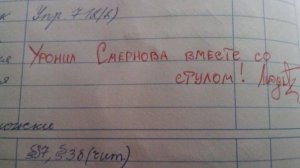 к Упр. 718(б)
Уронил Смернова вместе со
стулом!
§7, §38(чит)